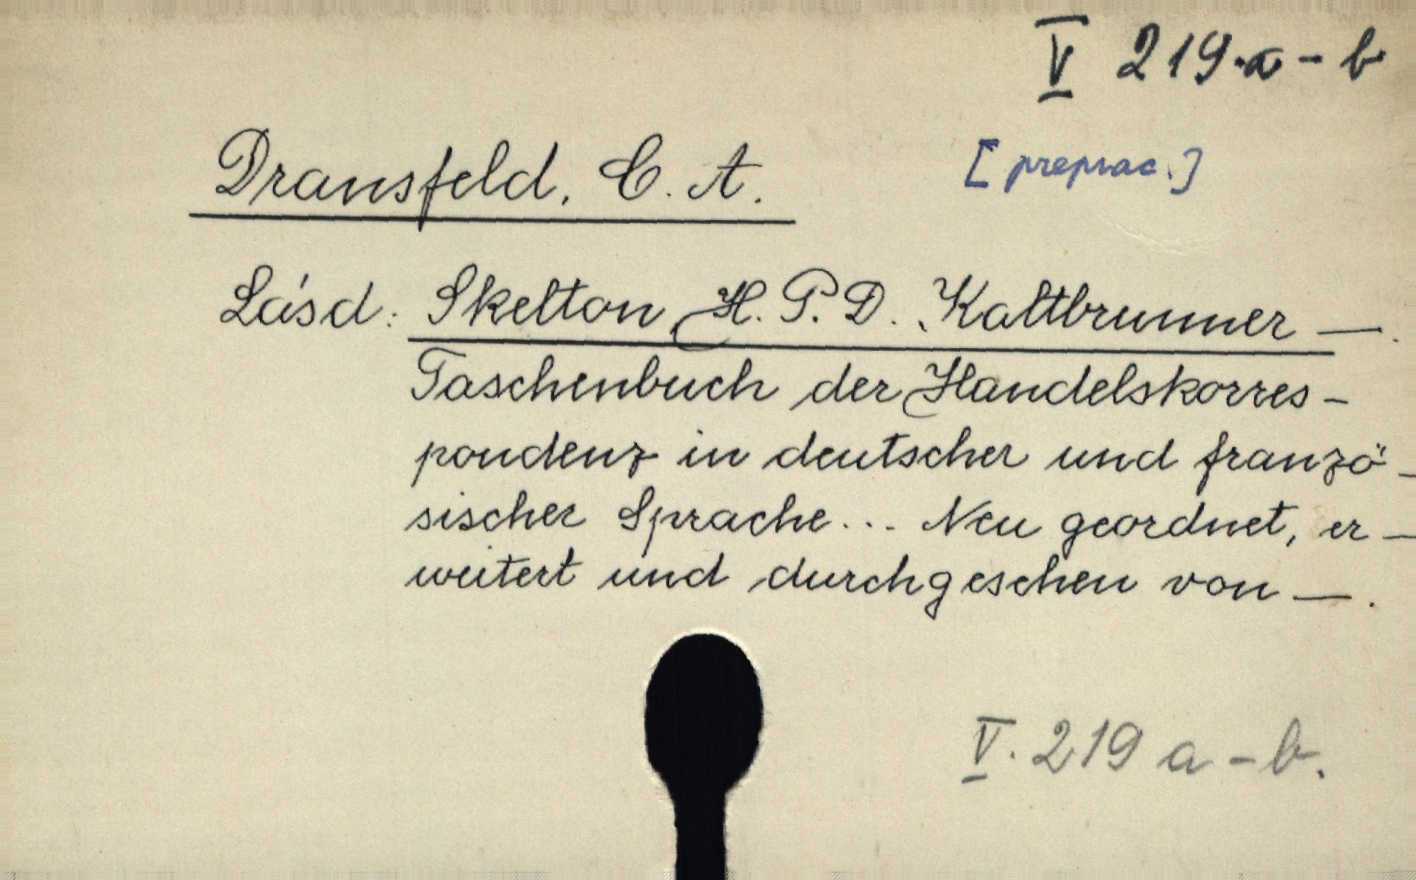 V 219.a-b
Dransfeld, C. A.
[preprac.]
Lásd: Skelton, H. P. D. Kaltbrunner —.
Taschenbuch der Handelskorres-
pondenz in deutscher und franzö-
sischer Sprache... Neu geordnet, er-
weitert und durchgesehen von —.
V. 219 a-b.